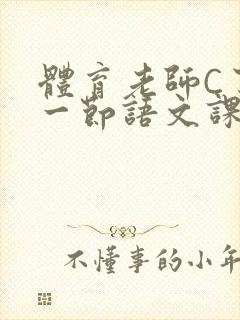 體育老師C
一節語文課
不懂事的小年